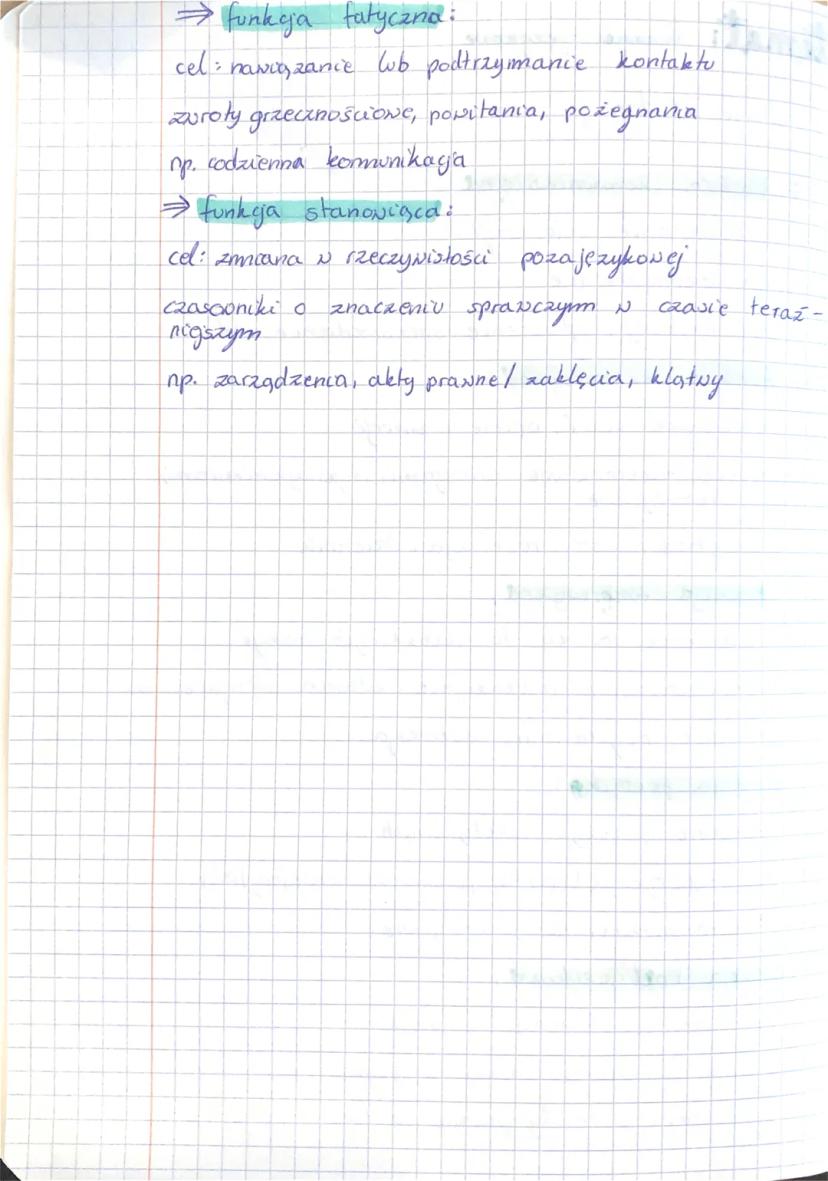 ⇒ funkcja fatyczna:
cel: nawiązanie lub podtrzymanie kontaktu
zwroty grzecznościowe, powitania, pożegnania
np. codzienna komunikacja
⇒ funkcja stanowiąca:
cel: zmiana w rzeczywistości pozajęzykowej
czasowniki o znaczeniu sprawczym w czasie teraź-
niejszym
np. zarządzenia, akty prawne / zaklęcia, klątwy